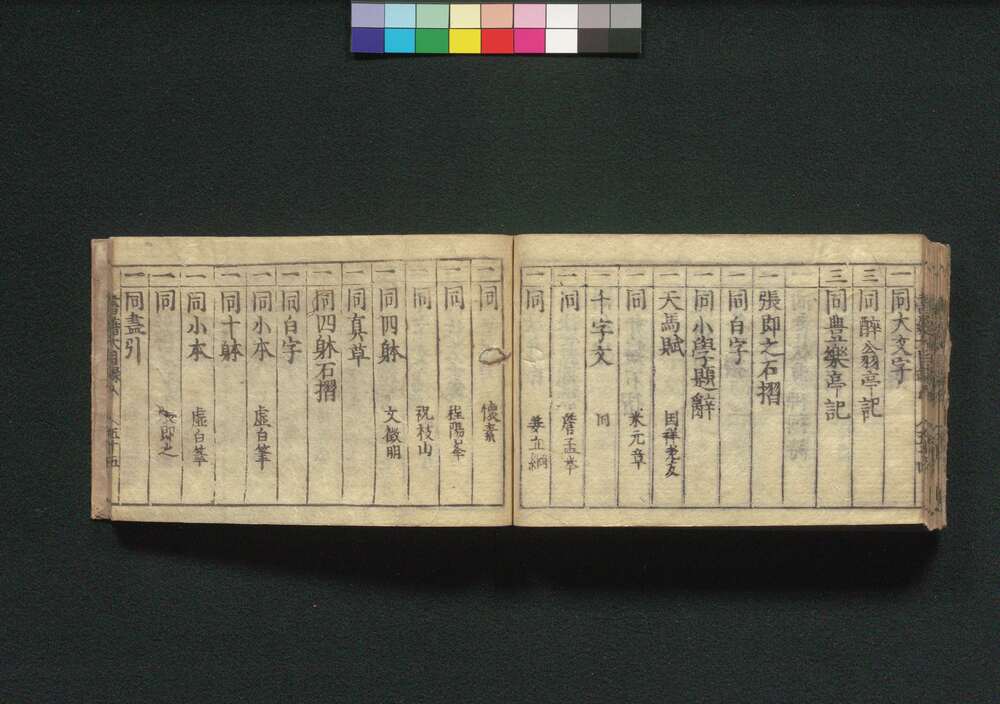 一 同大文字
三 同醉翁亭記
三 同豊樂亭記
一 張即之石摺
一 同白字
一 同小學題辭
一 天馬賦
一 同 米元章
一 千字文 同
一 同 詹孟夲
一 同 姜立綱
一 同 懐素
一 同 程陽峯
一 同 祝枝山
一 同四躰 文徴明
一 同真草
一 同四躰石摺
一 同白字
一 同小本 虚白筆
一 同十躰
一 同小本 虚白筆
一 同 即之
一 同盡引